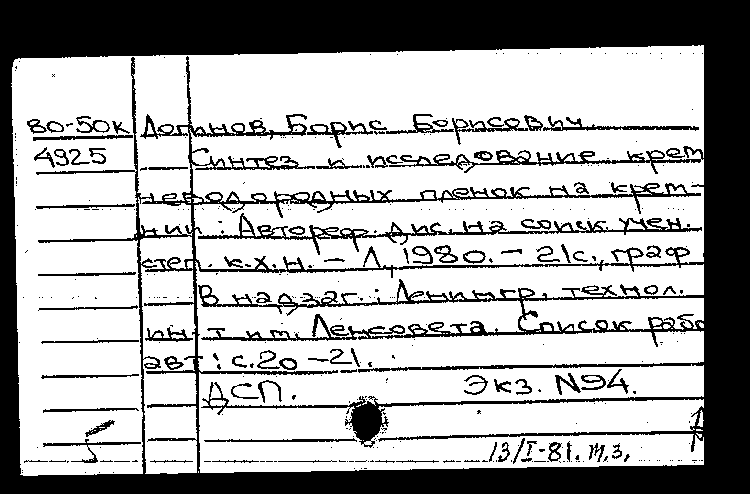 ВО-50К Логинов, Борис Борисович.
4925 Синтез и исследование крем
неводородных пленок на крем-
нии : Автореф. дис. на соиск. учен.
степ. к.х.н. - Л., 1980. - 21с., граф.
В надзаг.: Ленингр. технол.
ин-т им. Ленсовета. Список рабо
авт: с.20-21.
ДСП. Экз. N94.
5
13/I-81. м.з.